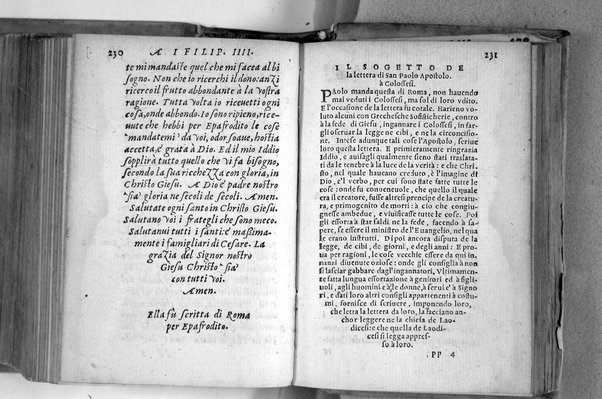 230
A I FILIP. IIII.
te mi mandaste quel che mi facea al bi
sogno. Non che io ricerchi il dono: anzi
ricerco il frutto abbondante à la vostra
ragione. Tutta volta io ricevetti ogni
cosa, onde abondo. Io sono ripieno, rice-
uute che hebbi per Epafrodito le cose
mandatemi da voi, odor soaue, hostia
accetta, e grata à Dio. Ed il mio Iddio
sopplirà tutto quello che vi fa bisogno,
secondo la sua ricchezza con gloria, in
Christo Giesu. A Dio e padre nostro
sia gloria ne secoli de secoli. Amen.
Salutate ogni santo in Christo Giesu.
Salutano voi i frategli che sono meco.
Salutanui tutti i santi: e maßima-
mente i famigliari di Cesare. La
grazia del Signor nostro
Giesu Christo sia
con tutti voi.
Amen.
Ella fù scritta di Roma
per Epafrodito.
231
IL SOGETTO DE
la lettera di San Paolo Apostolo.
à Colossesi.
Paolo manda questa di Roma, non hauendo
mai veduti i Colossesi, ma sol di loro vdito.
E l'occasione de la lettera fu cotale. Harieno vo-
luto alcuni con Grechesche Sofisticherie, contro
à la fede di Giesu, ingannare i Colossesi, in far-
gli oseruar la legge ne cibi, e ne la circoncisio-
ne. Intese adunque tali cose l'Apostolo, scriue
loro questa lettera. E primieramente ringrazia
Iddio, e auisagli qualmente sieno stati traslata-
ti da le tenebre à la luce de la verità: e che Chri-
sto, nel quale haueano creduto, è l'imagine di
Dio, e'l verbo, per cui sono state fatte tutte le
cose: onde fu conueneuole, che quello il quale
era il creatore, fusse altresì principe de la creatu-
ra, e primogenito de morti: à ciò che congiu-
gnesse ambedue, e viuificasse tutte le cose. Poi
gli essorta à star saldi ne la fede, facendo à sa-
pere, se essere il ministro de l'Euangelio, nel qua
le erano instrutti. Di poi ancora disputa de la
legge, de cibi, de giorni, e degli anni: E pro-
ua per ragioni, le cose vecchie essere da qui in-
nanzi diuenute oziose: onde gli consiglia à non
si lasciar gabbare dagl'ingannatori, Vltimamen-
te fatta lunga essortazione à genitori ed à figli-
uoli, agli huomini e à le donne, à serui e à Signo
ri, e dati loro altri consigli appartenenti à costu-
mi, fornisce di scriuere, imponendo loro,
che letta la lettera da loro, la facciano an-
chor leggere ne la chiesa de Lao-
dicesi: e che quella de Laodi-
cesi si legga appres-
so à loro.
PP 4